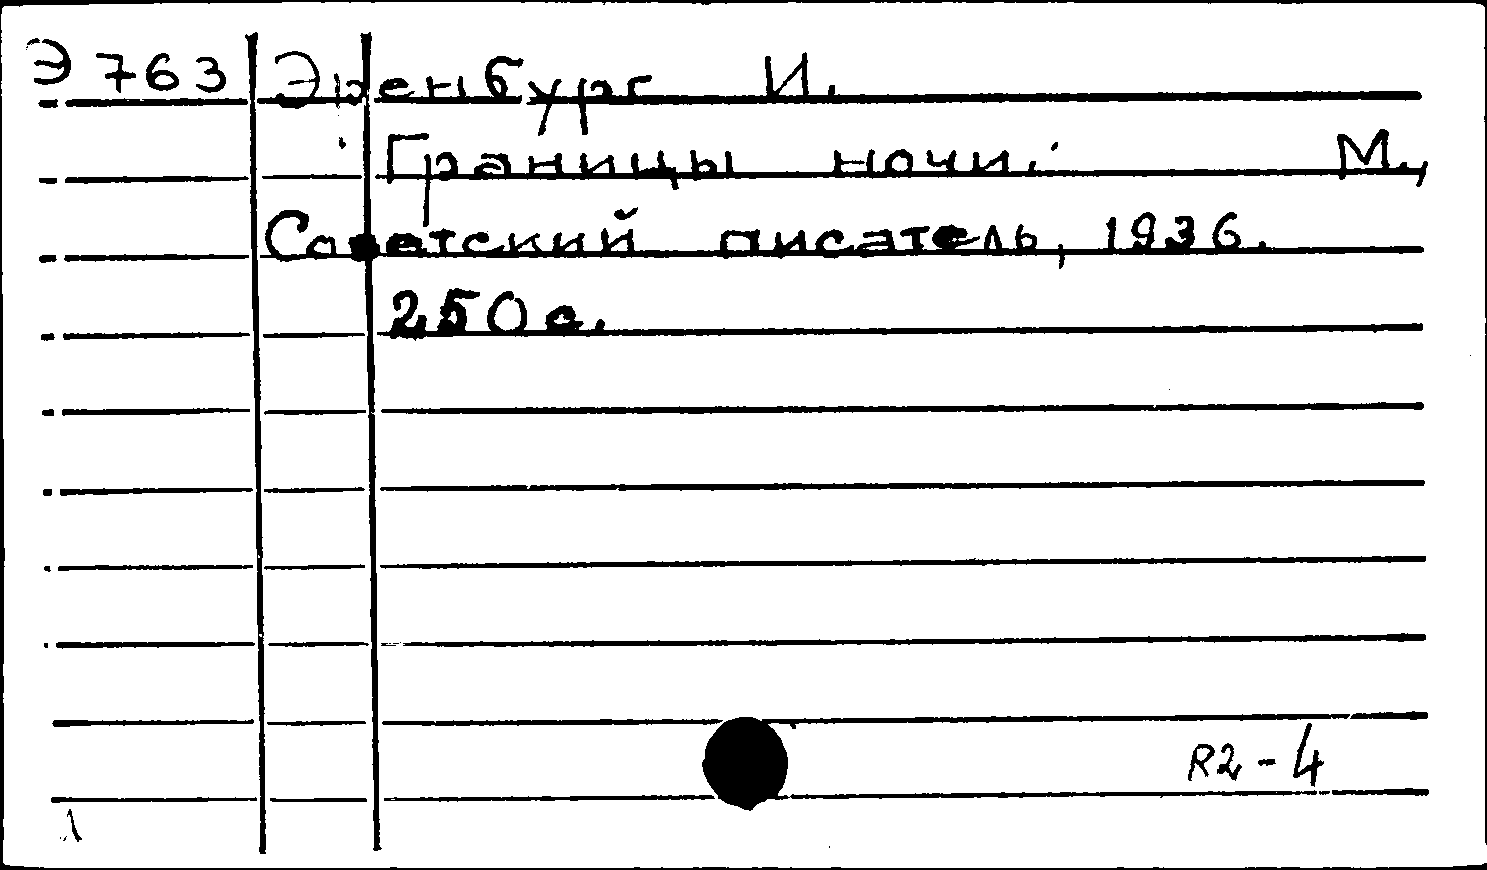 Э 763 Эренбург И.
Границы ночи. М.,
Советский писатель, 1936.
250 с.
R2-4